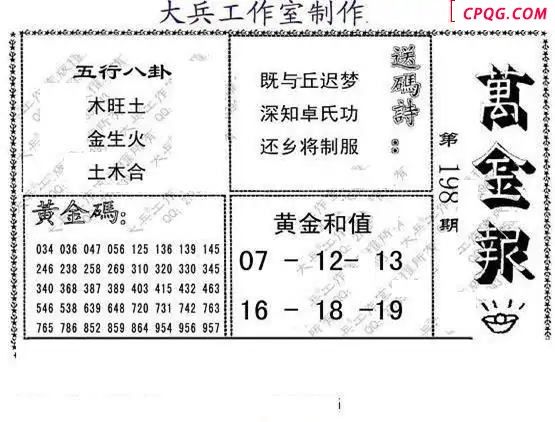 大兵工作室制作
CPQG.COM
五行八卦
木旺土
金生火
土木合
送碼詩：
既与丘迟梦
深知卓氏功
还乡将制服
萬金報
第198期
黃金碼：
034 036 047 056 125 136 139 145
246 238 258 269 310 320 330 345
340 368 387 389 403 415 432 463
546 538 639 648 720 731 742 763
765 786 852 859 864 954 956 957
黄金和值
07 - 12- 13
16 - 18 -19
i